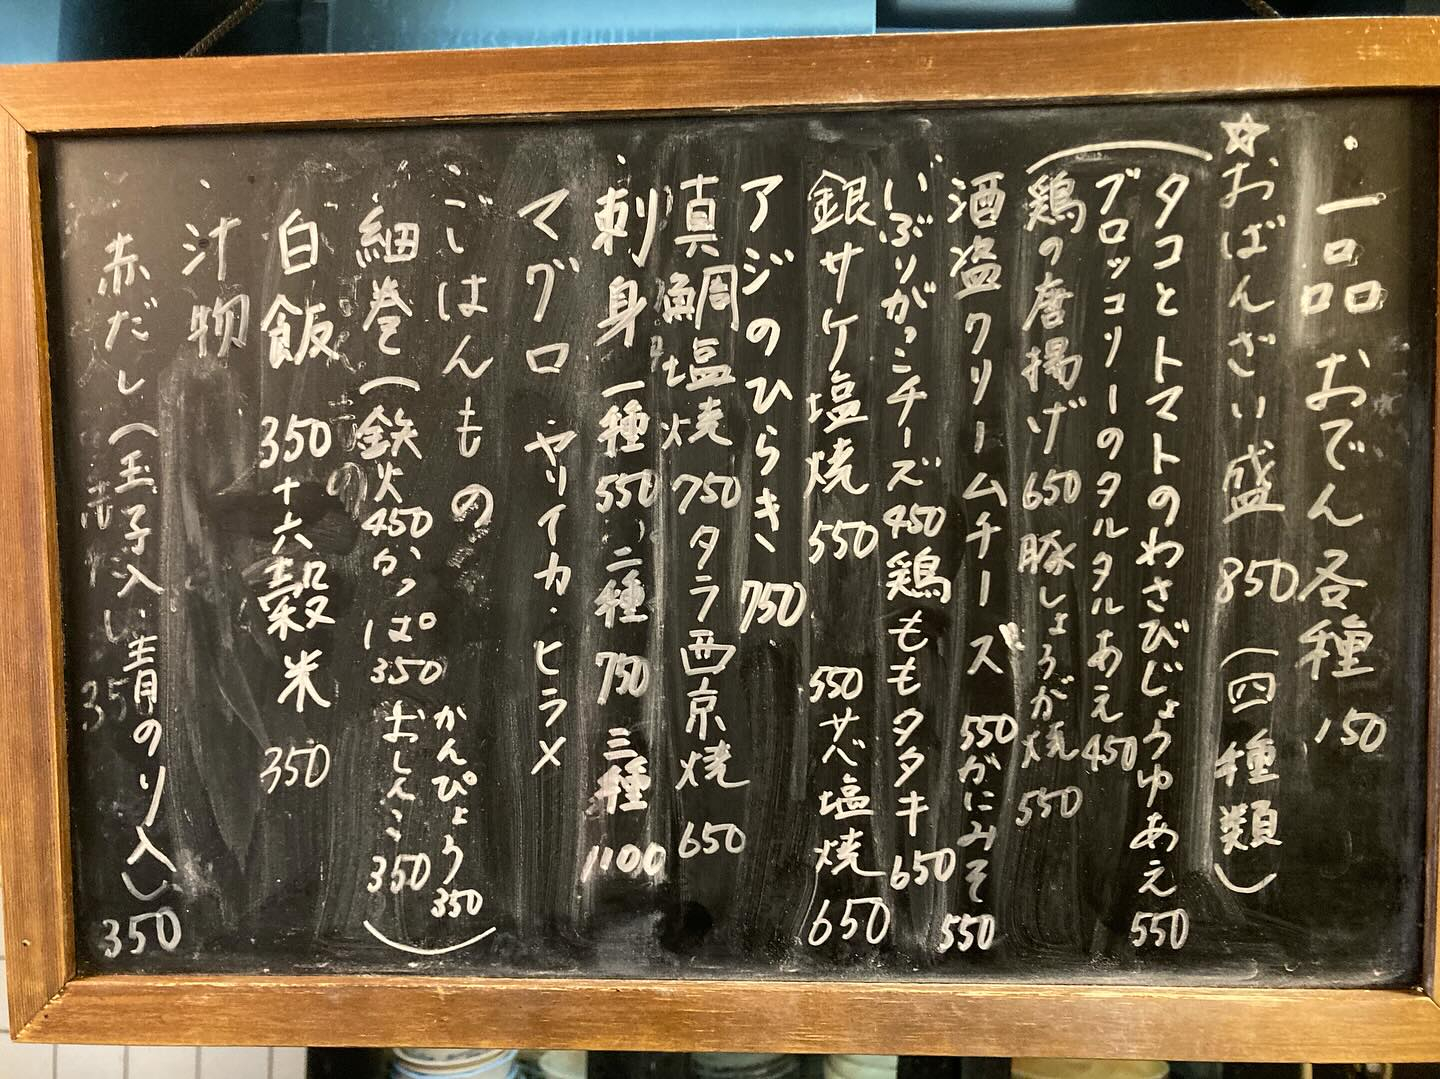 ・一品 おでん各種 150
☆おばんざい盛 850 (四種類)
タコとトマトのわさびじょうゆあえ 550
ブロッコリーのタルタルあえ 450
鶏の唐揚げ 650 豚しょうが焼 550
酒盗クリームチーズ 550 かにみそ 550
いぶりがっこチーズ 450 鶏ももタタキ 650
銀サケ塩焼 550 サバ塩焼 650
アジのひらき 750
真鯛塩焼 750 タラ西京焼 650
・刺身 一種 550 二種 750 三種 1100
マグロ ヤリイカ・ヒラメ
・ごはんもの
細巻(鉄火 450 かっぱ 350 おしんこ 350
かんぴょう 350)
白飯 350 十六穀米 350
・汁物
赤だし(玉子入り、青のり入) 350